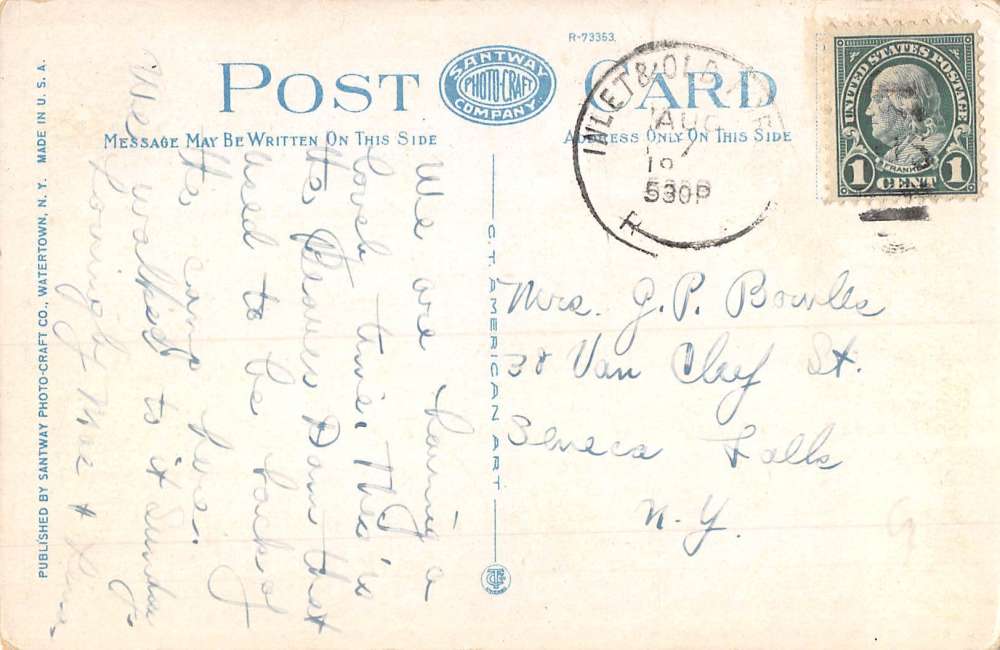 R-73353.
POST CARD
SANTWAY
PHOTO-CRAFT
COMPANY.
MESSAGE MAY BE WRITTEN ON THIS SIDE
ADDRESS ONLY ON THIS SIDE
INLET & OLD
AUG
530P
UNITED STATES POSTAGE
FRANKLIN
1 CENT 1
We are having a
lovely time. This is
the Beaver Dam that
used to be back of
the camp here.
We walked to it Sunday.
Lovingly Mae &
Mrs. J. P. Bowles
38 Van Clef St.
Seneca Falls
N. Y.
C. T. AMERICAN ART
PUBLISHED BY SANTWAY PHOTO-CRAFT CO., WATERTOWN, N. Y. MADE IN U. S. A.